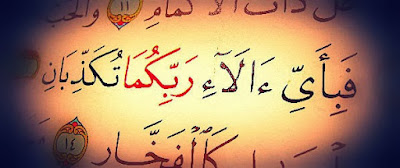 ذَاتُ ٱلْأَكْمَامِ ١١ وَٱلْحَبُّ
فَبِأَىِّ ءَالَآءِ رَبِّكُمَا تُكَذِّبَانِ
كَٱلْفَخَّارِ ١٤